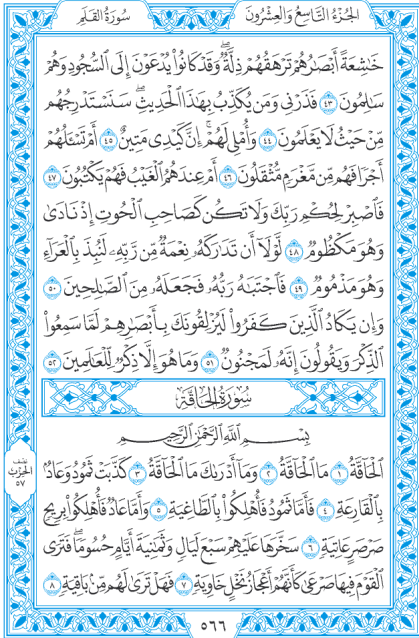 الجزء التاسع والعشرون
سورة القلم
خَٰشِعَةً أَبْصَٰرُهُمْ تَرْهَقُهُمْ ذِلَّةٌۖ وَقَدْ كَانُوا۟ يُدْعَوْنَ إِلَى ٱلسُّجُودِ وَهُمْ
سَٰلِمُونَ ٤٣ فَذَرْنِى وَمَن يُكَذِّبُ بِهَٰذَا ٱلْحَدِيثِۖ سَنَسْتَدْرِجُهُم
مِّنْ حَيْثُ لَا يَعْلَمُونَ ٤٤ وَأُمْلِى لَهُمْۚ إِنَّ كَيْدِى مَتِينٌ ٤٥ أَمْ تَسْـَٔلُهُمْ
أَجْرًا فَهُم مِّن مَّغْرَمٍ مُّثْقَلُونَ ٤٦ أَمْ عِندَهُمُ ٱلْغَيْبُ فَهُمْ يَكْتُبُونَ ٤٧
فَٱصْبِرْ لِحُكْمِ رَبِّكَ وَلَا تَكُن كَصَاحِبِ ٱلْحُوتِ إِذْ نَادَىٰ
وَهُوَ مَكْظُومٌ ٤٨ لَّوْلَآ أَن تَدَٰرَكَهُۥ نِعْمَةٌ مِّن رَّبِّهِۦ لَنُبِذَ بِٱلْعَرَآءِ
وَهُوَ مَذْمُومٌ ٤٩ فَٱجْتَبَٰهُ رَبُّهُۥ فَجَعَلَهُۥ مِنَ ٱلصَّٰلِحِينَ ٥٠
وَإِن يَكَادُ ٱلَّذِينَ كَفَرُوا۟ لَيُزْلِقُونَكَ بِأَبْصَٰرِهِمْ لَمَّا سَمِعُوا۟
ٱلذِّكْرَ وَيَقُولُونَ إِنَّهُۥ لَمَجْنُونٌ ٥١ وَمَا هُوَ إِلَّا ذِكْرٌ لِّلْعَٰلَمِينَ ٥٢
سورة الحاقة
بِسْمِ ٱللَّهِ ٱلرَّحْمَٰنِ ٱلرَّحِيمِ
ٱلْحَآقَّةُ ١ مَا ٱلْحَآقَّةُ ٢ وَمَآ أَدْرَىٰكَ مَا ٱلْحَآقَّةُ ٣ كَذَّبَتْ ثَمُودُ وَعَادٌۢ
بِٱلْقَارِعَةِ ٤ فَأَمَّا ثَمُودُ فَأُهْلِكُوا۟ بِٱلطَّاغِيَةِ ٥ وَأَمَّا عَادٌ فَأُهْلِكُوا۟ بِرِيحٍ
صَرْصَرٍ عَاتِيَةٍ ٦ سَخَّرَهَا عَلَيْهِمْ سَبْعَ لَيَالٍ وَثَمَٰنِيَةَ أَيَّامٍ حُسُومًاۖ فَتَرَى
ٱلْقَوْمَ فِيهَا صَرْعَىٰ كَأَنَّهُمْ أَعْجَازُ نَخْلٍ خَاوِيَةٍ ٧ فَهَلْ تَرَىٰ لَهُم مِّنۢ بَاقِيَةٍ ٨
نصف
الحزب
٥٧
٥٦٦